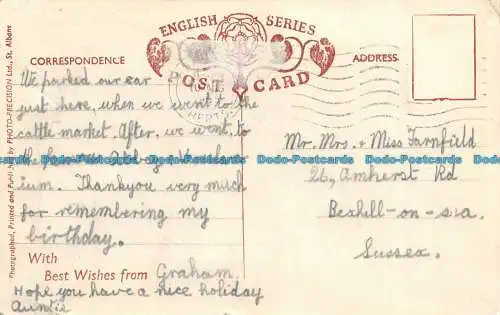 ENGLISH SERIES
POST CARD
CORRESPONDENCE
ADDRESS
We parked our car
just here, when we went to the
cattle market. After, we went to
the
ium. Thankyou very much
for remembering my
birthday.
With
Best Wishes from Graham.
Hope you have a nice holiday
Auntie
Mr. Mrs. + Miss Farnfield
26, Amherst Rd
Bexhill-on-sea
Sussex.
Photographed, Printed and Publ by PHOTO-PRECISION Ltd., St. Albans
Dodo-Postcards Dodo-Postcards Dodo-Postcards Dodo-Postcards Dodo-Postcards